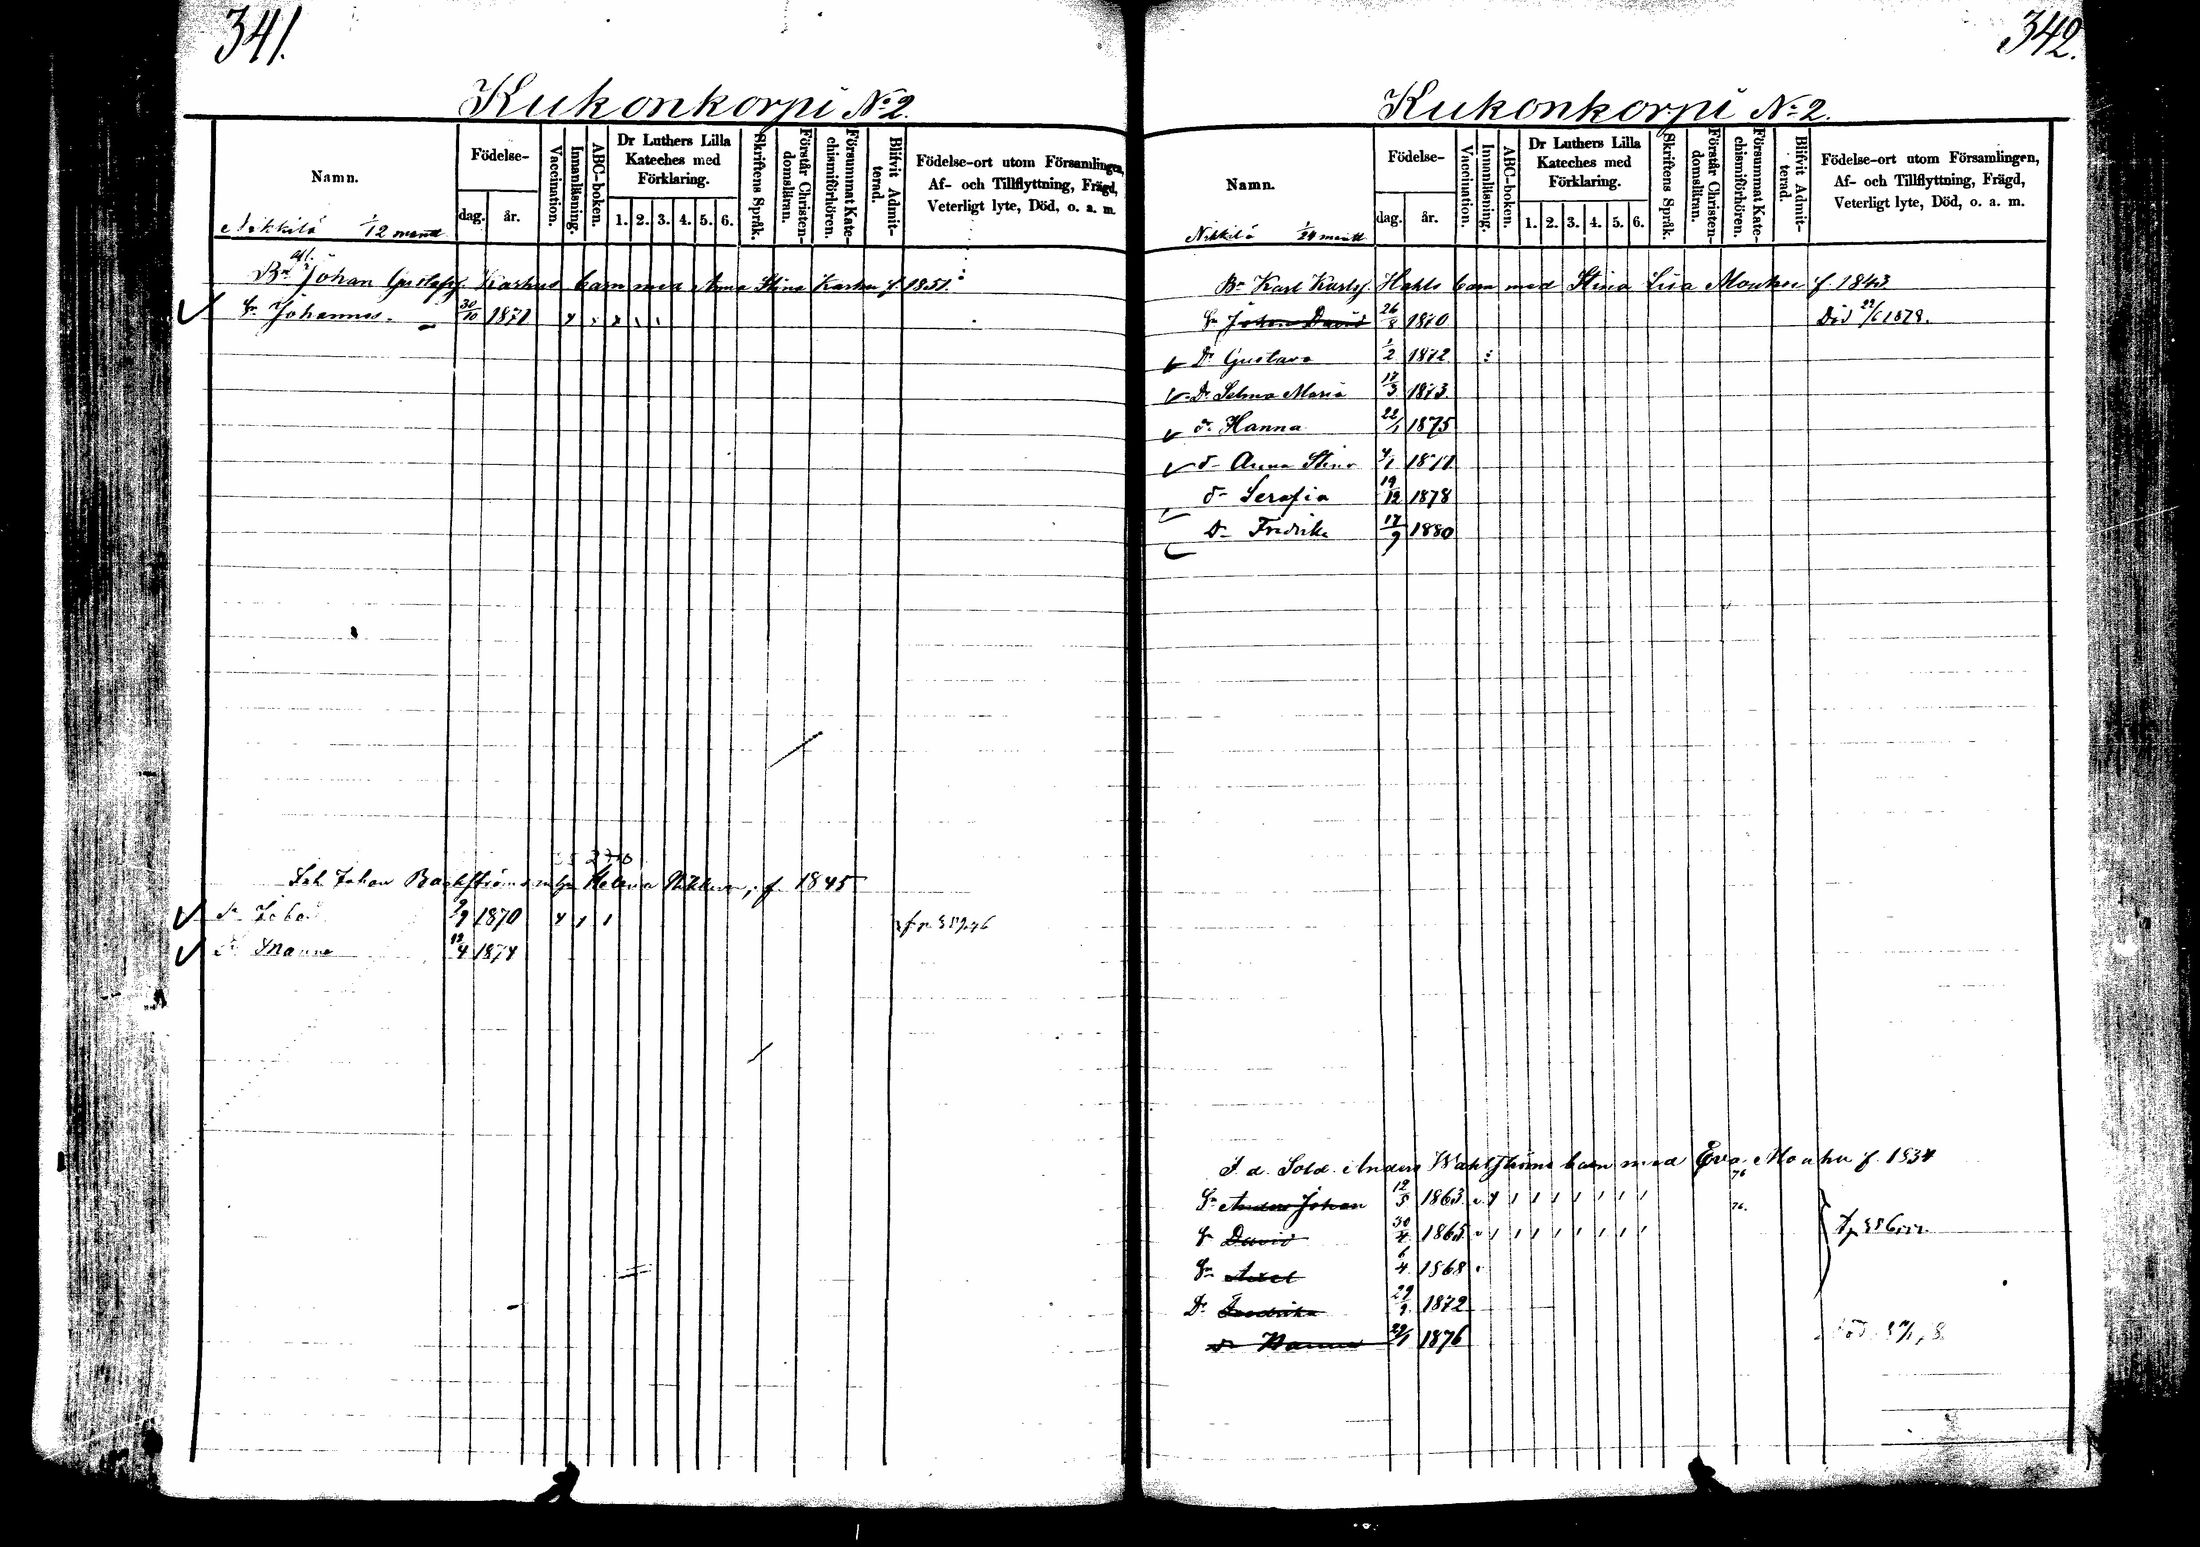 341.
Kukonkorpi No 2.
Namn.
Födelse-
dag.
år.
Vaccination.
Innanläsning.
ABC-boken.
Dr Luthers Lilla Kateches med Förklaring.
1. 2. 3. 4. 5. 6.
Skriftens Språk.
Förstår Christendomsläran.
Försummat Katechismiförhören.
Blifvit Admitterad.
Födelse-ort utom Församlingen,
Af- och Tillflyttning, Frägd,
Veterligt lyte, Död, o. a. m.
Nikkilä 1/12 mantal
Bn Johan Gustafsf. Karhus barn med Anna Stina Karhu f. 1851.
Sn Johannes. 30/10 1871
Johan Backströms m hu Helena f. 1845
Sn Joha 9/9 1870
Manna 19/4 1874
342.
Kukonkorpi No 2.
Namn.
Födelse-
dag.
år.
Vaccination.
Innanläsning.
ABC-boken.
Dr Luthers Lilla Kateches med Förklaring.
1. 2. 3. 4. 5. 6.
Skriftens Språk.
Förstår Christendomsläran.
Försummat Katechismiförhören.
Blifvit Admitterad.
Födelse-ort utom Församlingen,
Af- och Tillflyttning, Frägd,
Veterligt lyte, Död, o. a. m.
Nikkilä 1/24 mantl
Bn Karl Karlsf. Hahls barn med Stina Lisa Mouhu f. 1843
Sn Johan David 26/8 1870 Död 22/6 1878.
Dr Gustava 1/2 1872
Dr Selma Maria 17/3 1873
dr Hanna 22/1 1875
dr Anna Stina 4/1 1877
dr Serafia 19/12 1878
Dr Fredrika 17/9 1880
F. d. Sold. Anders Wahlströms barn med Eva Mouhu f. 1834
76
Sn Anders Johan 12/5 1863 76.
Sn David 30/4 1865
Sn Axel 6/4 1868
Dr Fredrika 29/9 1872
dr Hanna 29/1 1876